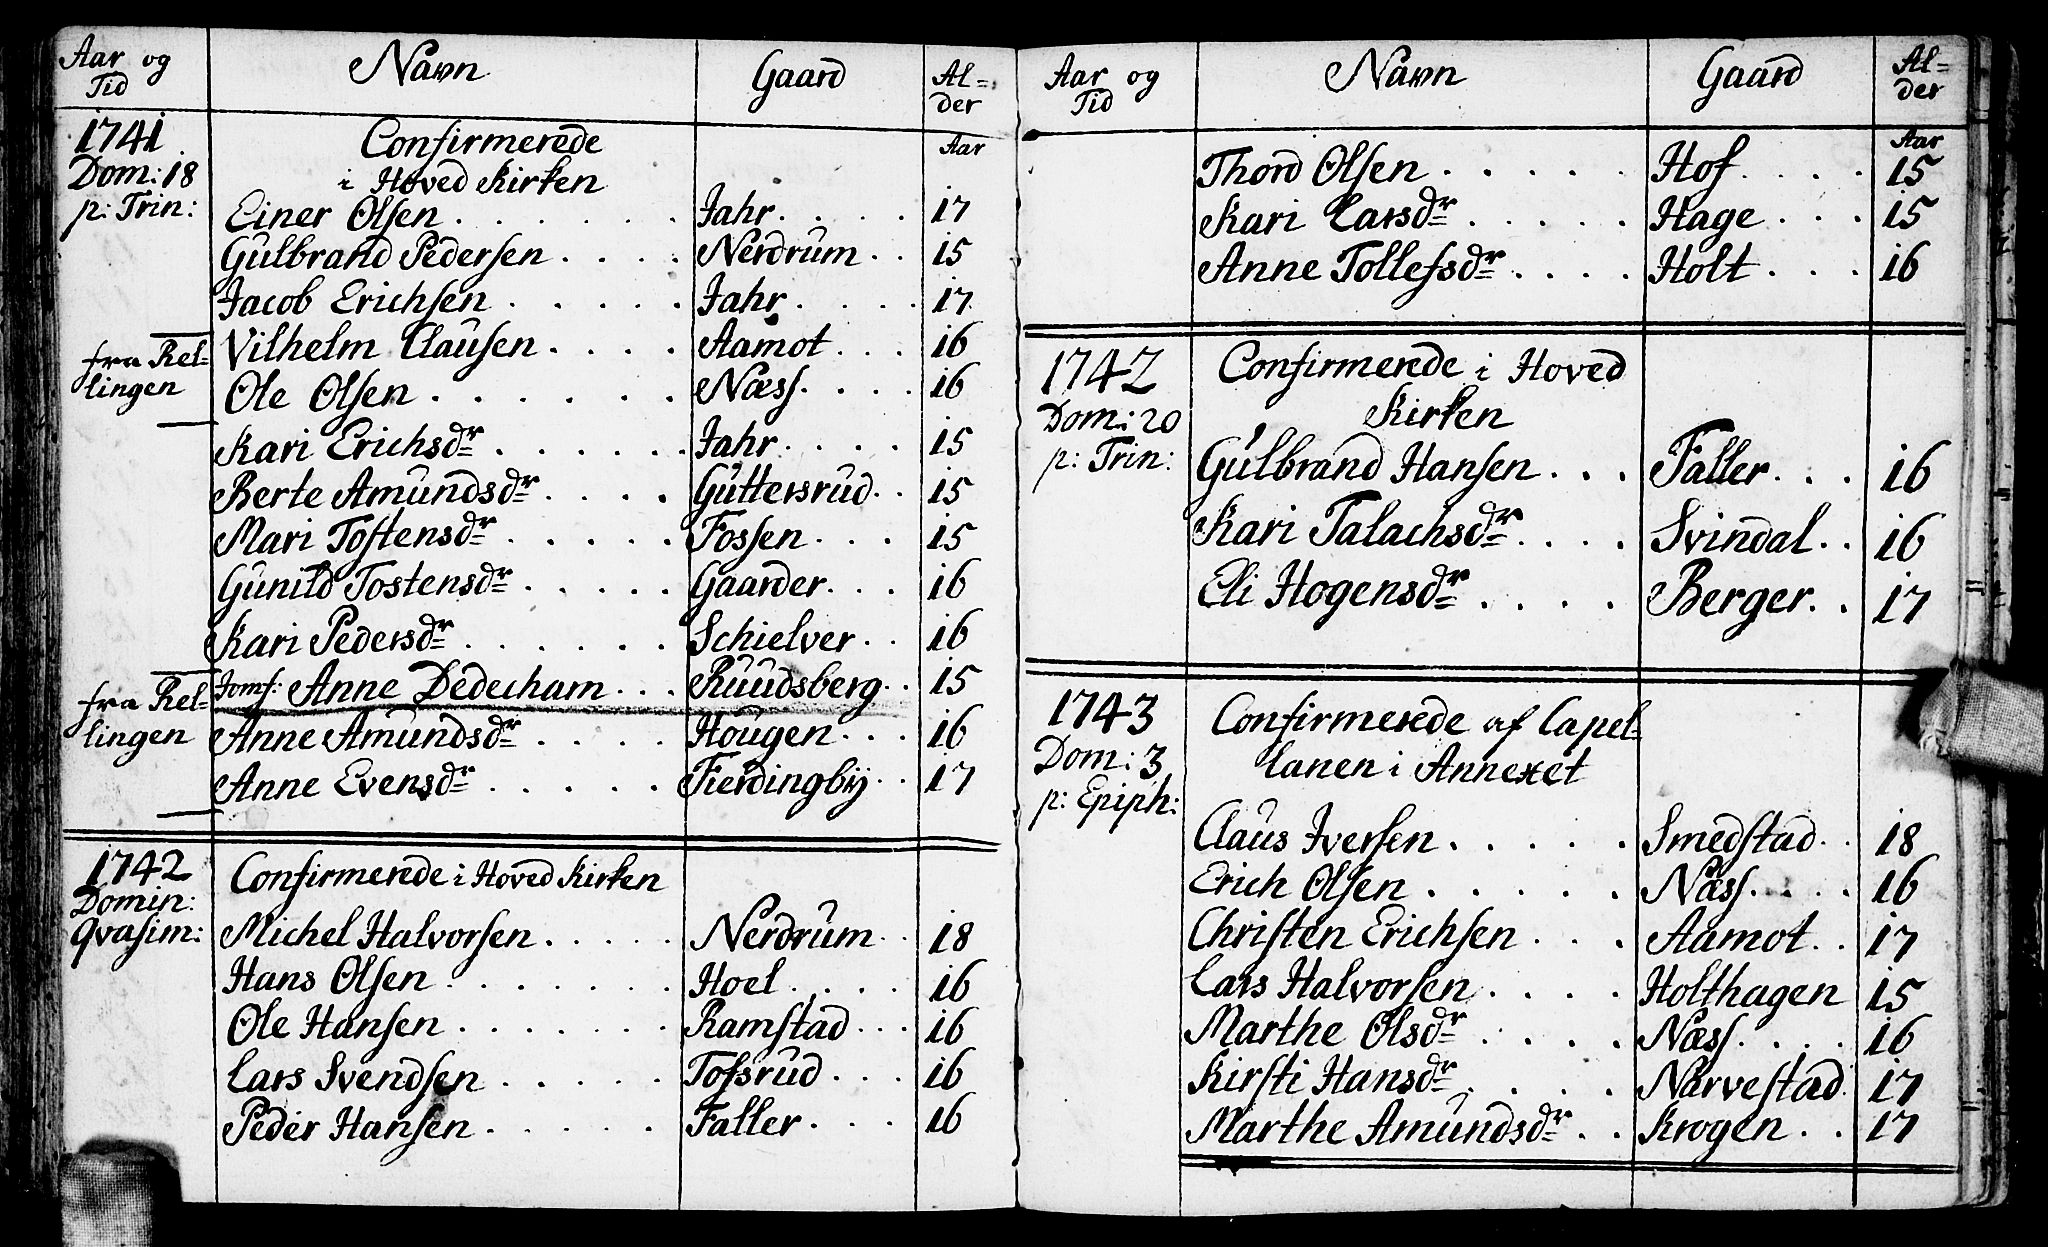 Aar og Tid | Navn | Gaard | Al-der
1741 | Confirmerede | | Aar
Dom: 18 | i Hoved Kirken
p: Trin: | Einer Olsen | Jahr | 17
Gulbrand Pedersen | Nerdrum | 15
Jacob Erichsen | Jahr | 17
fra Rel- | Vilhelm Clausen | Aamot | 16
lingen | Ole Olsen | Næss | 16
Kari Erichsdr | Jahr | 15
Berte Amundsdr | Guttersrud | 15
Mari Tostensdr | Fossen | 15
Gunild Tostensdr | Gaarder | 16
Kari Pedersdr | Schielver | 16
fra Rel- | Jomf: Anne Dedecham | Ruudsberg | 15
lingen | Anne Amundsdr | Hougen | 16
Anne Evensdr | Fierdingby | 17
1742 | Confirmerede i Hoved Kirken
Domin:
Qvasim: | Michel Halvorsen | Nerdrum | 18
Hans Olsen | Hoel | 16
Ole Hansen | Ramstad | 16
Lars Svendsen | Tofsrud | 16
Peder Hansen | Faller | 16
Aar og Tid | Navn | Gaard | Al-der
Aar
Thord Olsen | Hof | 15
Kari Larsdr | Hage | 15
Anne Tollefsdr | Holt | 16
1742 | Confirmerede i Hoved
Dom: 20 | Kirken
p: Trin: | Gulbrand Hansen | Faller | 16
Kari Talachsdr | Svindal | 16
Eli Hogensdr | Berger | 17
1743 | Confirmerede af Capel-
Dom: 3 | lanen i Annexet
p: Epiph:
Claus Iversen | Smedstad | 18
Erich Olsen | Næss | 16
Christen Erichsen | Aamot | 17
Lars Halvorsen | Holthagen | 15
Marthe Olsdr | Næss | 16
Kirsti Hansdr | Narvestad | 17
Marthe Amundsdr | Krogen | 17